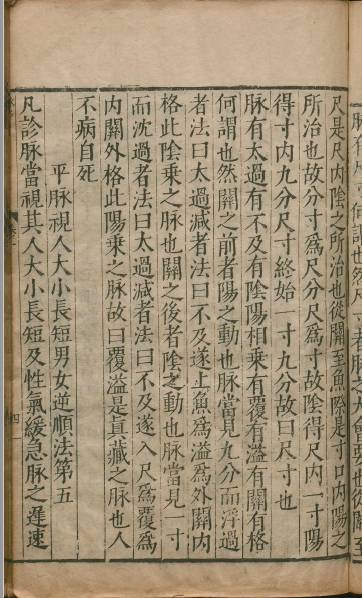 尺是尺内陰之所治也從關至魚際是寸口内陽之
所治也故分寸爲尺分尺爲寸故陰得尺内一寸陽
得寸内九分尺寸終始一寸九分故曰尺寸也
脉有太過有不及有陰陽相乗有覆有溢有關有格
何謂也然關之前者陽之動也脉當見九分而浮過
者法曰太過減者法曰不及遂上魚爲溢爲外關内
格此陰乗之脉也關之後者陰之動也脉當見一寸
而沈過者法曰太過減者法曰不及遂入尺爲覆爲
内關外格此陽乗之脉故曰覆溢是真藏之脉也人
不病自死
平脉視人大小長短男女逆順法第五
凡診脉當視其人大小長短及性氣緩急脉之遲速
四